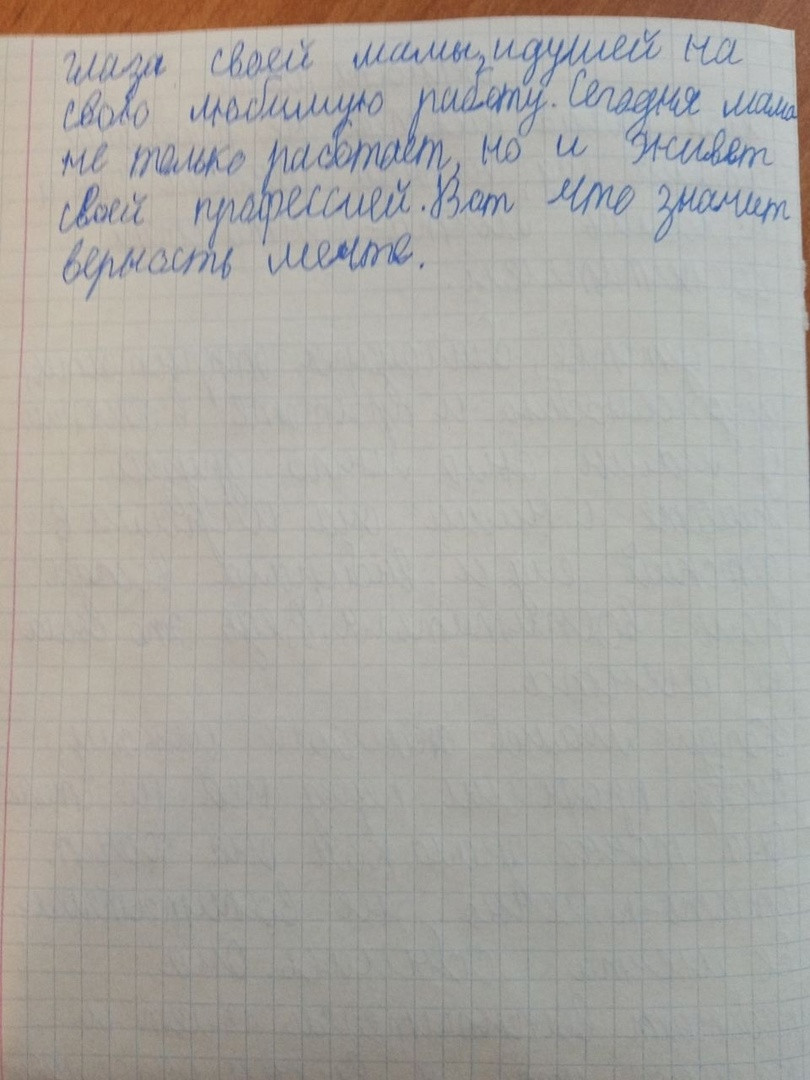 глаза своей мамы, идушей на
свою любимую работу. Сегодня мама
не только работает, но и живет
своей профессией. Вот что значит
верность мечте.